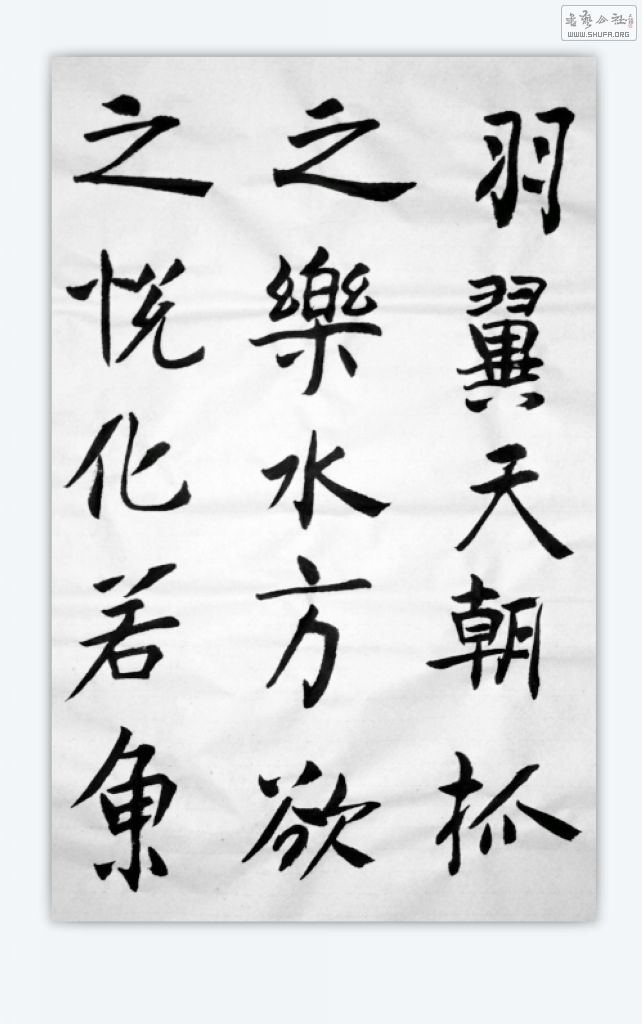 之悦化若魚
之樂水方欲
羽翼天朝抓
書藝公社
WWW.SHUFA.ORG